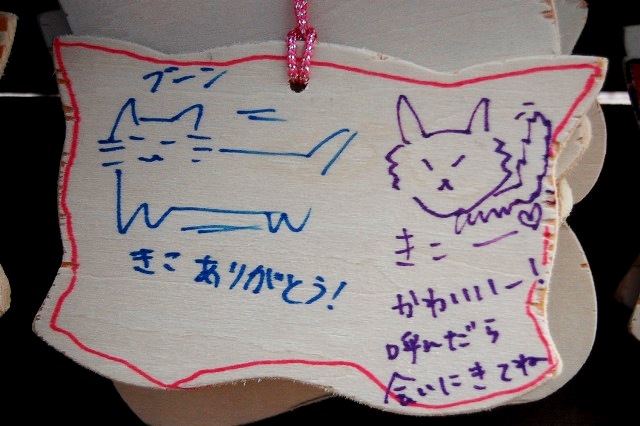 ブーン
きこ ありがとう!
きこー♡
かわいいー!
呼んだら
会いにきてね